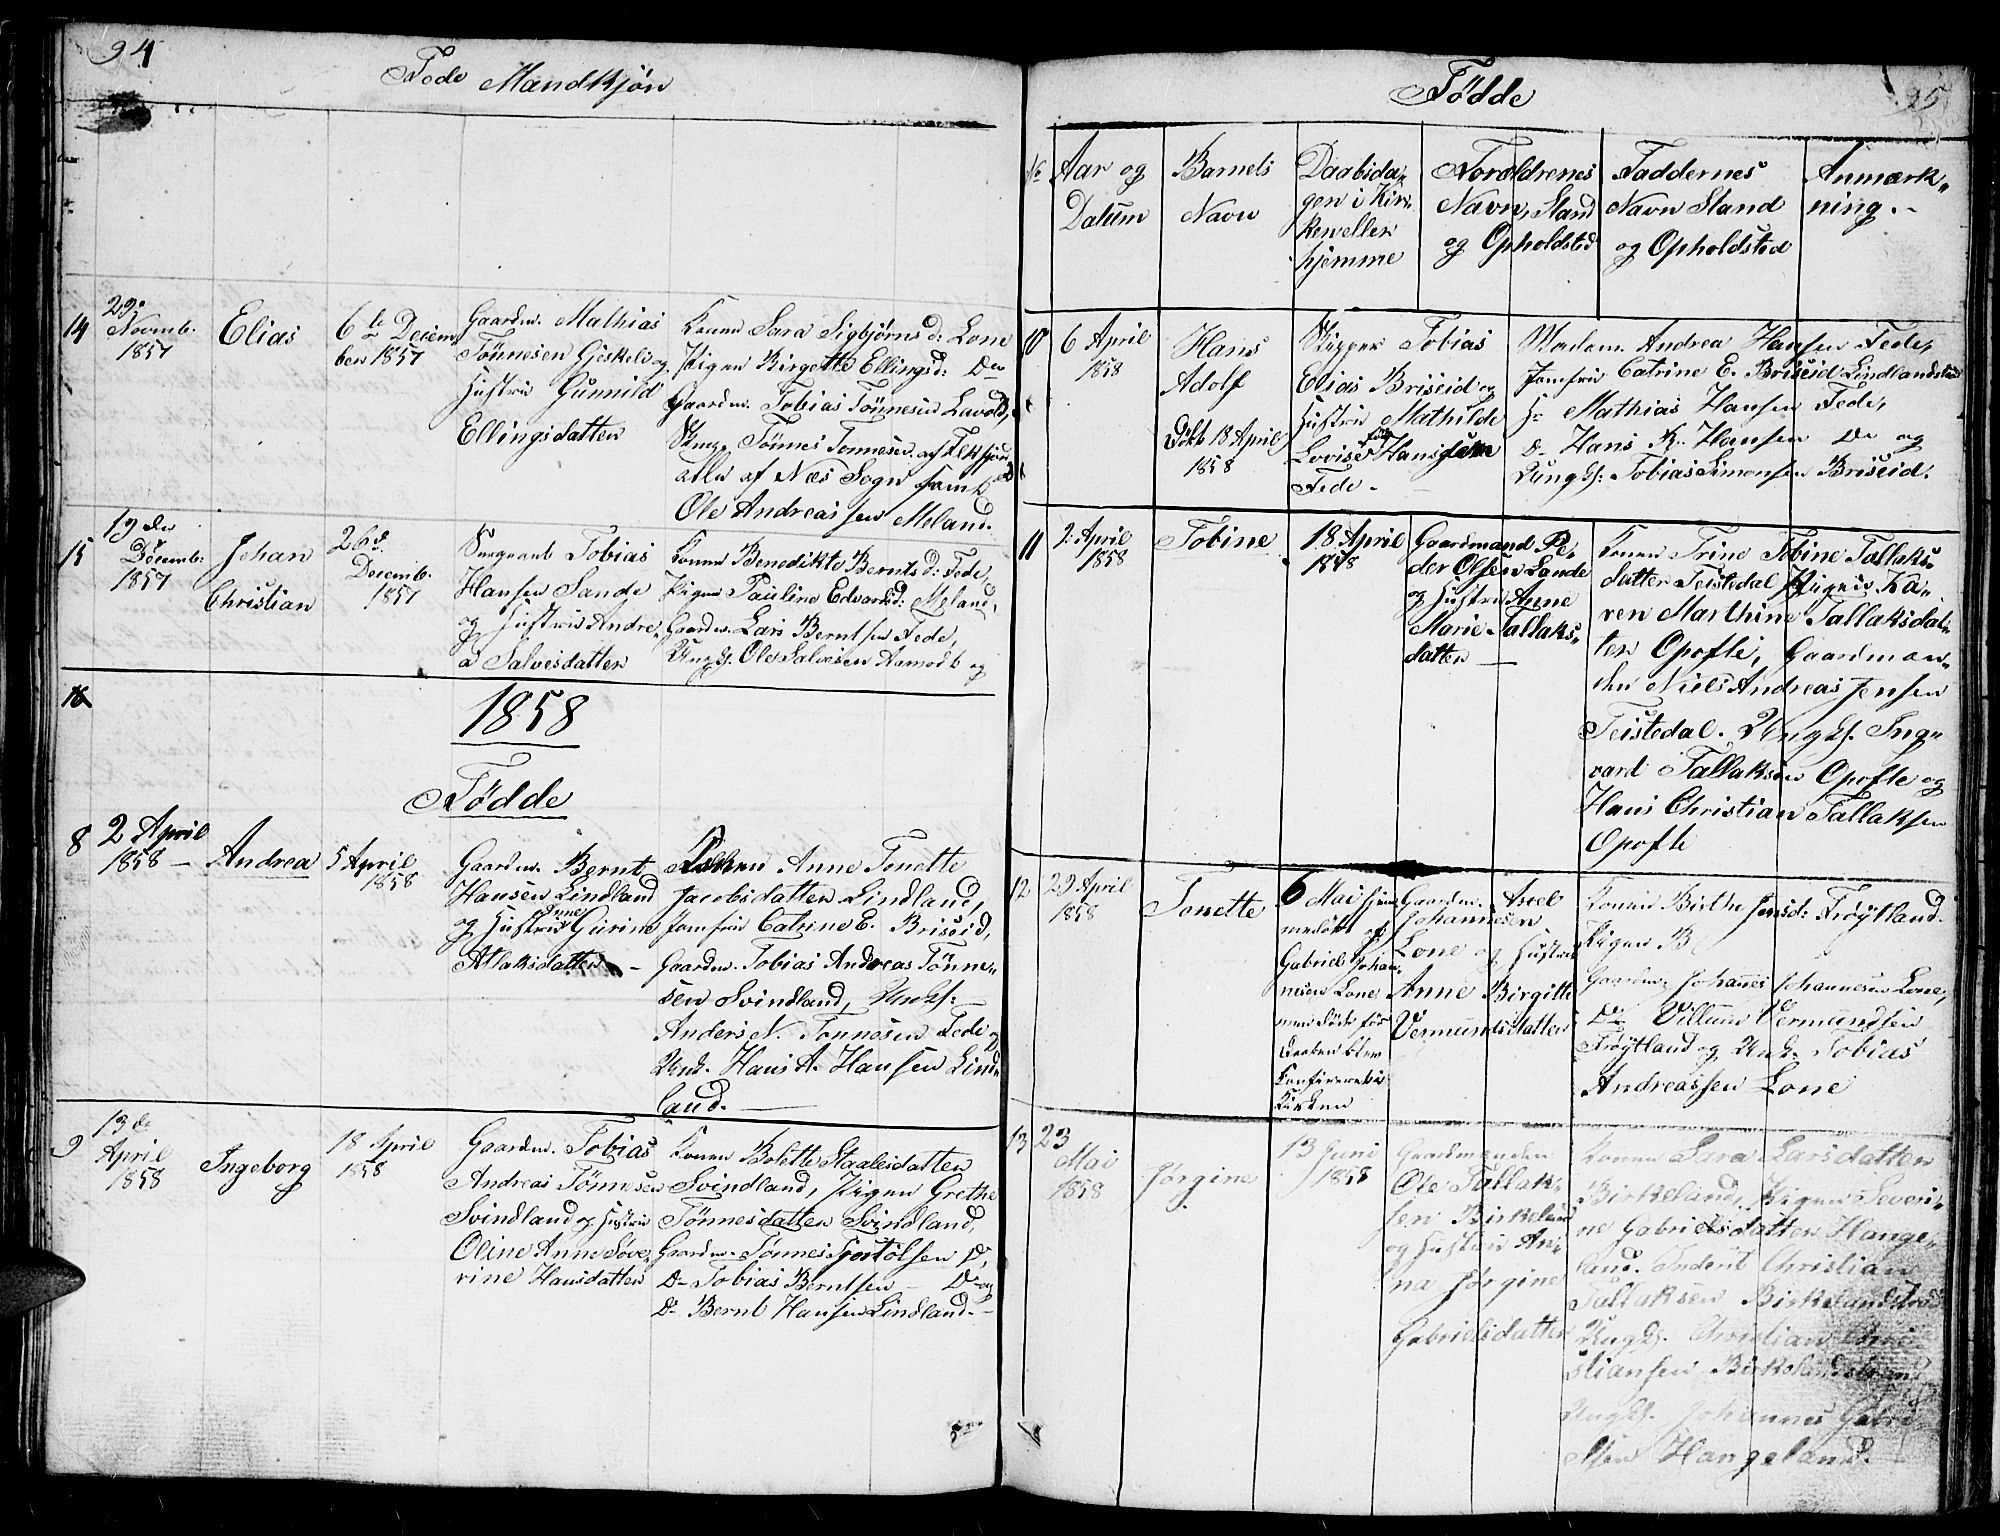 94
Fede Mandkjøn
14
22de
Novmb.
1857
Elias
6 te Decem
ber 1857
Gaardm. Mathias
Tønnesen Gjeskeli og
Hustru Gunnild
Ellingsdatter
Konen Sara Sigbjørnsd: Lone
Pigen Birgette Ellingsd: Do
Gaardm. Tobias Tønnesen Lavold,
Ungk. Tønnes Tønnesen af Flekkfjord
alle af Næs Sogn samt
Ole Andreassen Meland.
15
19 de
Decemb:
1857
Johan
Christian
26 d.
Decemb.
1857
Sergeant Tobias
Hansen Sande
og Hustru Andre-
a Salvesdatter
Konen Benedikte Berntsd: Fede,
Pigen Pauline Edvardsd: Meland,
Gaardm. Lars Berntsen Fede,
Ungk. Ole Salvesen Aamodt og
16
1858
Fødde
8
2 April
1858 —
Andrea
5 April
1858
Gaardm. Bernt
Hansen Lindland
og Hustru Anne Gurine
Atlaksdatter —
Konen Anne Tonette
Jacobsdatter Lindland,
Jomfru Catrine E. Briseid,
Gaardm. Tobias Andreas Tønne-
sen Svindland, Ungk: —
Anders N. Tønnesen Fede og
Ung. Hans A. Hansen Lind-
land. —
9
13 de
April
1858
Ingeborg
18 April
1858
Gaardm. Tobias
Andreas Tønnesen
Svindland og Hustru
Oline Anne Søve-
rine Hansdatter
Konen Bolette Staalesdatter
Svindland, Pigen Grethe
Tønnesdatter Svindland,
Gaardm. Tønnes Tjostolsen Do,
Do Tobias Berntsen — Do og
Do Bernt Hansen Lindland. —
95
Fødde
No
Aar og
Datum
Barnets
Navn
Daabsda-
gen i Kir-
ken eller
hjemme
Forældrenes
Navn, Stand
og Opholdsted
Faddernes
Navn Stand
og Opholdsted
Anmærk-
ning. -
10
6 April
1858
Hans
Adolf
Døbt 18 April
1858
Skipper Tobias
Elias Briseid og
Hustru Mathilde
Lovise født Hansen
Fede -
Madam. Andrea Hansen Fede,
Jomfru Catrine E. Briseid Lindlandstad
Hr Mathias Hansen Fede,
Do Hans K. Hansen Do og
Ungk: Tobias Simonsen Briseid.
11
2 April
1858
Tobine
18 April
1858
Gaardmand Pe-
der Olsen Sande
og Hustru Anne
Marie Tallaks-
datter —
Konen Trine Tobine Tallaks-
datter Teistedal Pigen Ka-
ren Marthine Tallaksdat-
ter Opofte, Gaardman-
den Niels Andreas Jensen
Teistedal. Ungk. Ing-
vard Tallaksen Opofte og
Hans Christian Tallaksen
Opofte
12
29 April
1858
Tonette
6 Mai hjem
medøbt og
Gabriel Johan-
nesen Lone
men Døde før
Daaben blev
Konfirmeret i
Kirken
Gaardm. Axel
Johannesen
Lone og Hustru
Anne Birgitte
Vermundsdatter
Konen Birthe Jensd: Frøytland.
Pigen B
Gaardm. Johanes Johannesen Lone,
Do Villum Vermundsen
Frøytland og Ungk. Tobias
Andreassen Lone
13
23
Mai
1858
Jørgine
13 Juni
1858
Gaardmanden
Ole Tallak-
sen Birkeland
og Hustru An-
na Jørgine
Gabrielsdatter
Konen Sara Larsdatter
Birkeland, Pigen Severi-
ne Gabrielsdatter Hange-
land. Inderst Christian
Tallaksen Birkelandstrand
Ungk. Christian Chri
stiansen Birkelandstrand
Ungk. Johannes Gabri
elsen Hangeland.